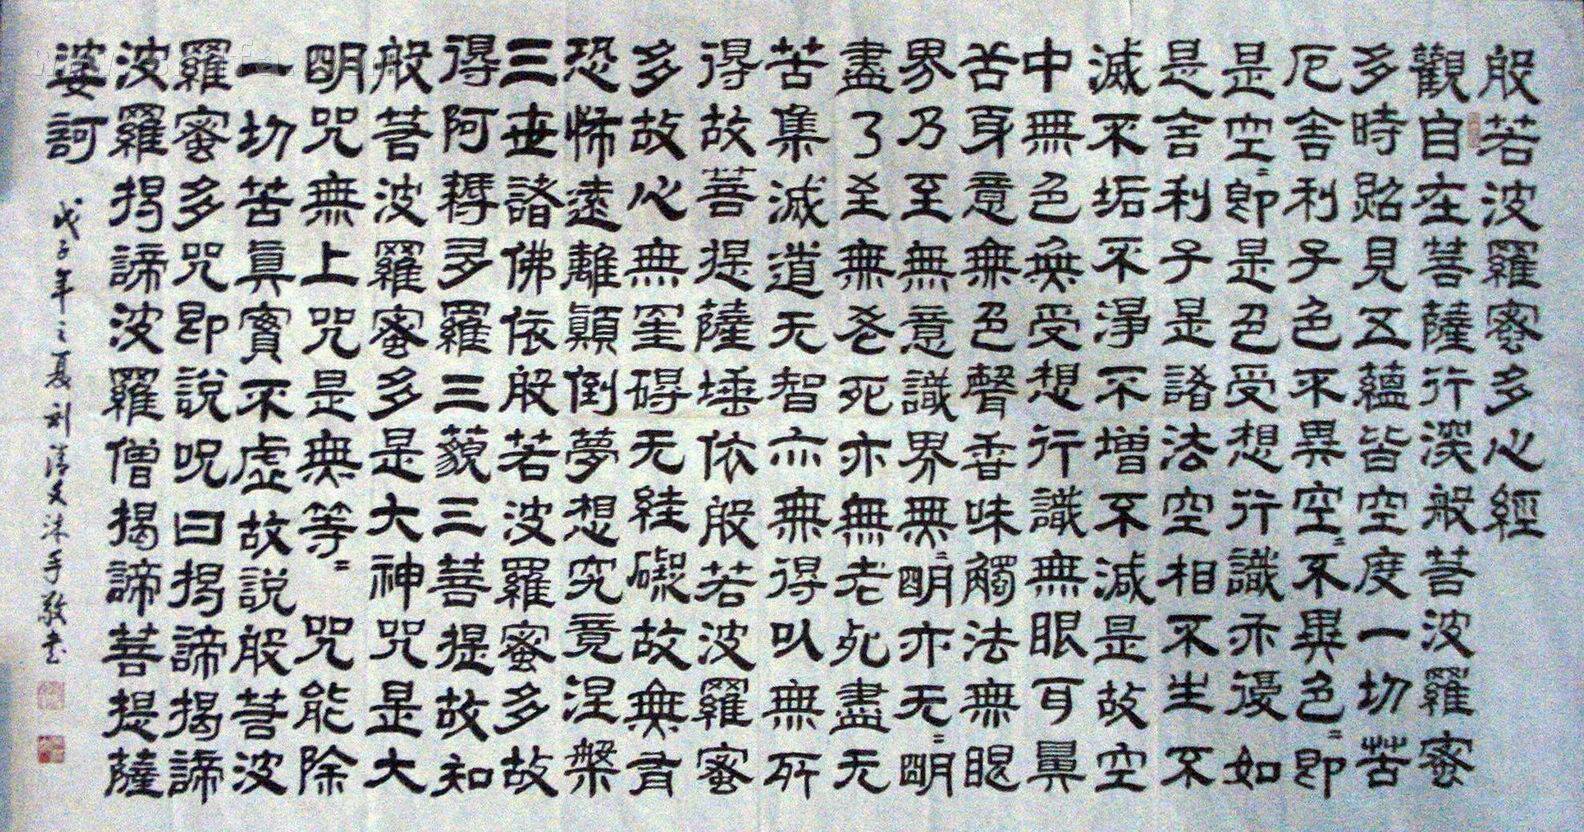 般若波羅蜜多心經
觀自在菩薩行深般若波羅蜜
多時照見五蘊皆空度一切苦
厄舍利子色不異空〻不異色〻即
是空〻即是色受想行識亦復如
是舍利子是諸法空相不生不
滅不垢不淨不增不減是故空
中無色無受想行識無眼耳鼻
舌身意無色聲香味觸法無眼
界乃至無意識界無〻明亦无〻明
盡乃至無老死亦無老死盡无
苦集滅道无智亦無得以無所
得故菩提薩埵依般若波羅蜜
多故心無罣碍无絓礙故無有
恐怖遠離顛倒夢想究竟涅槃
三世諸佛依般若波羅蜜多故
得阿耨多羅三藐三菩提故知
般若波羅蜜多是大神咒是大
明咒無上咒是無等〻咒能除
一切苦真實不虛故說般若波
羅蜜多咒即說呪曰揭諦揭諦
波羅揭諦波羅僧揭諦菩提薩
婆訶
戊子年之夏刘清文沐手敬書